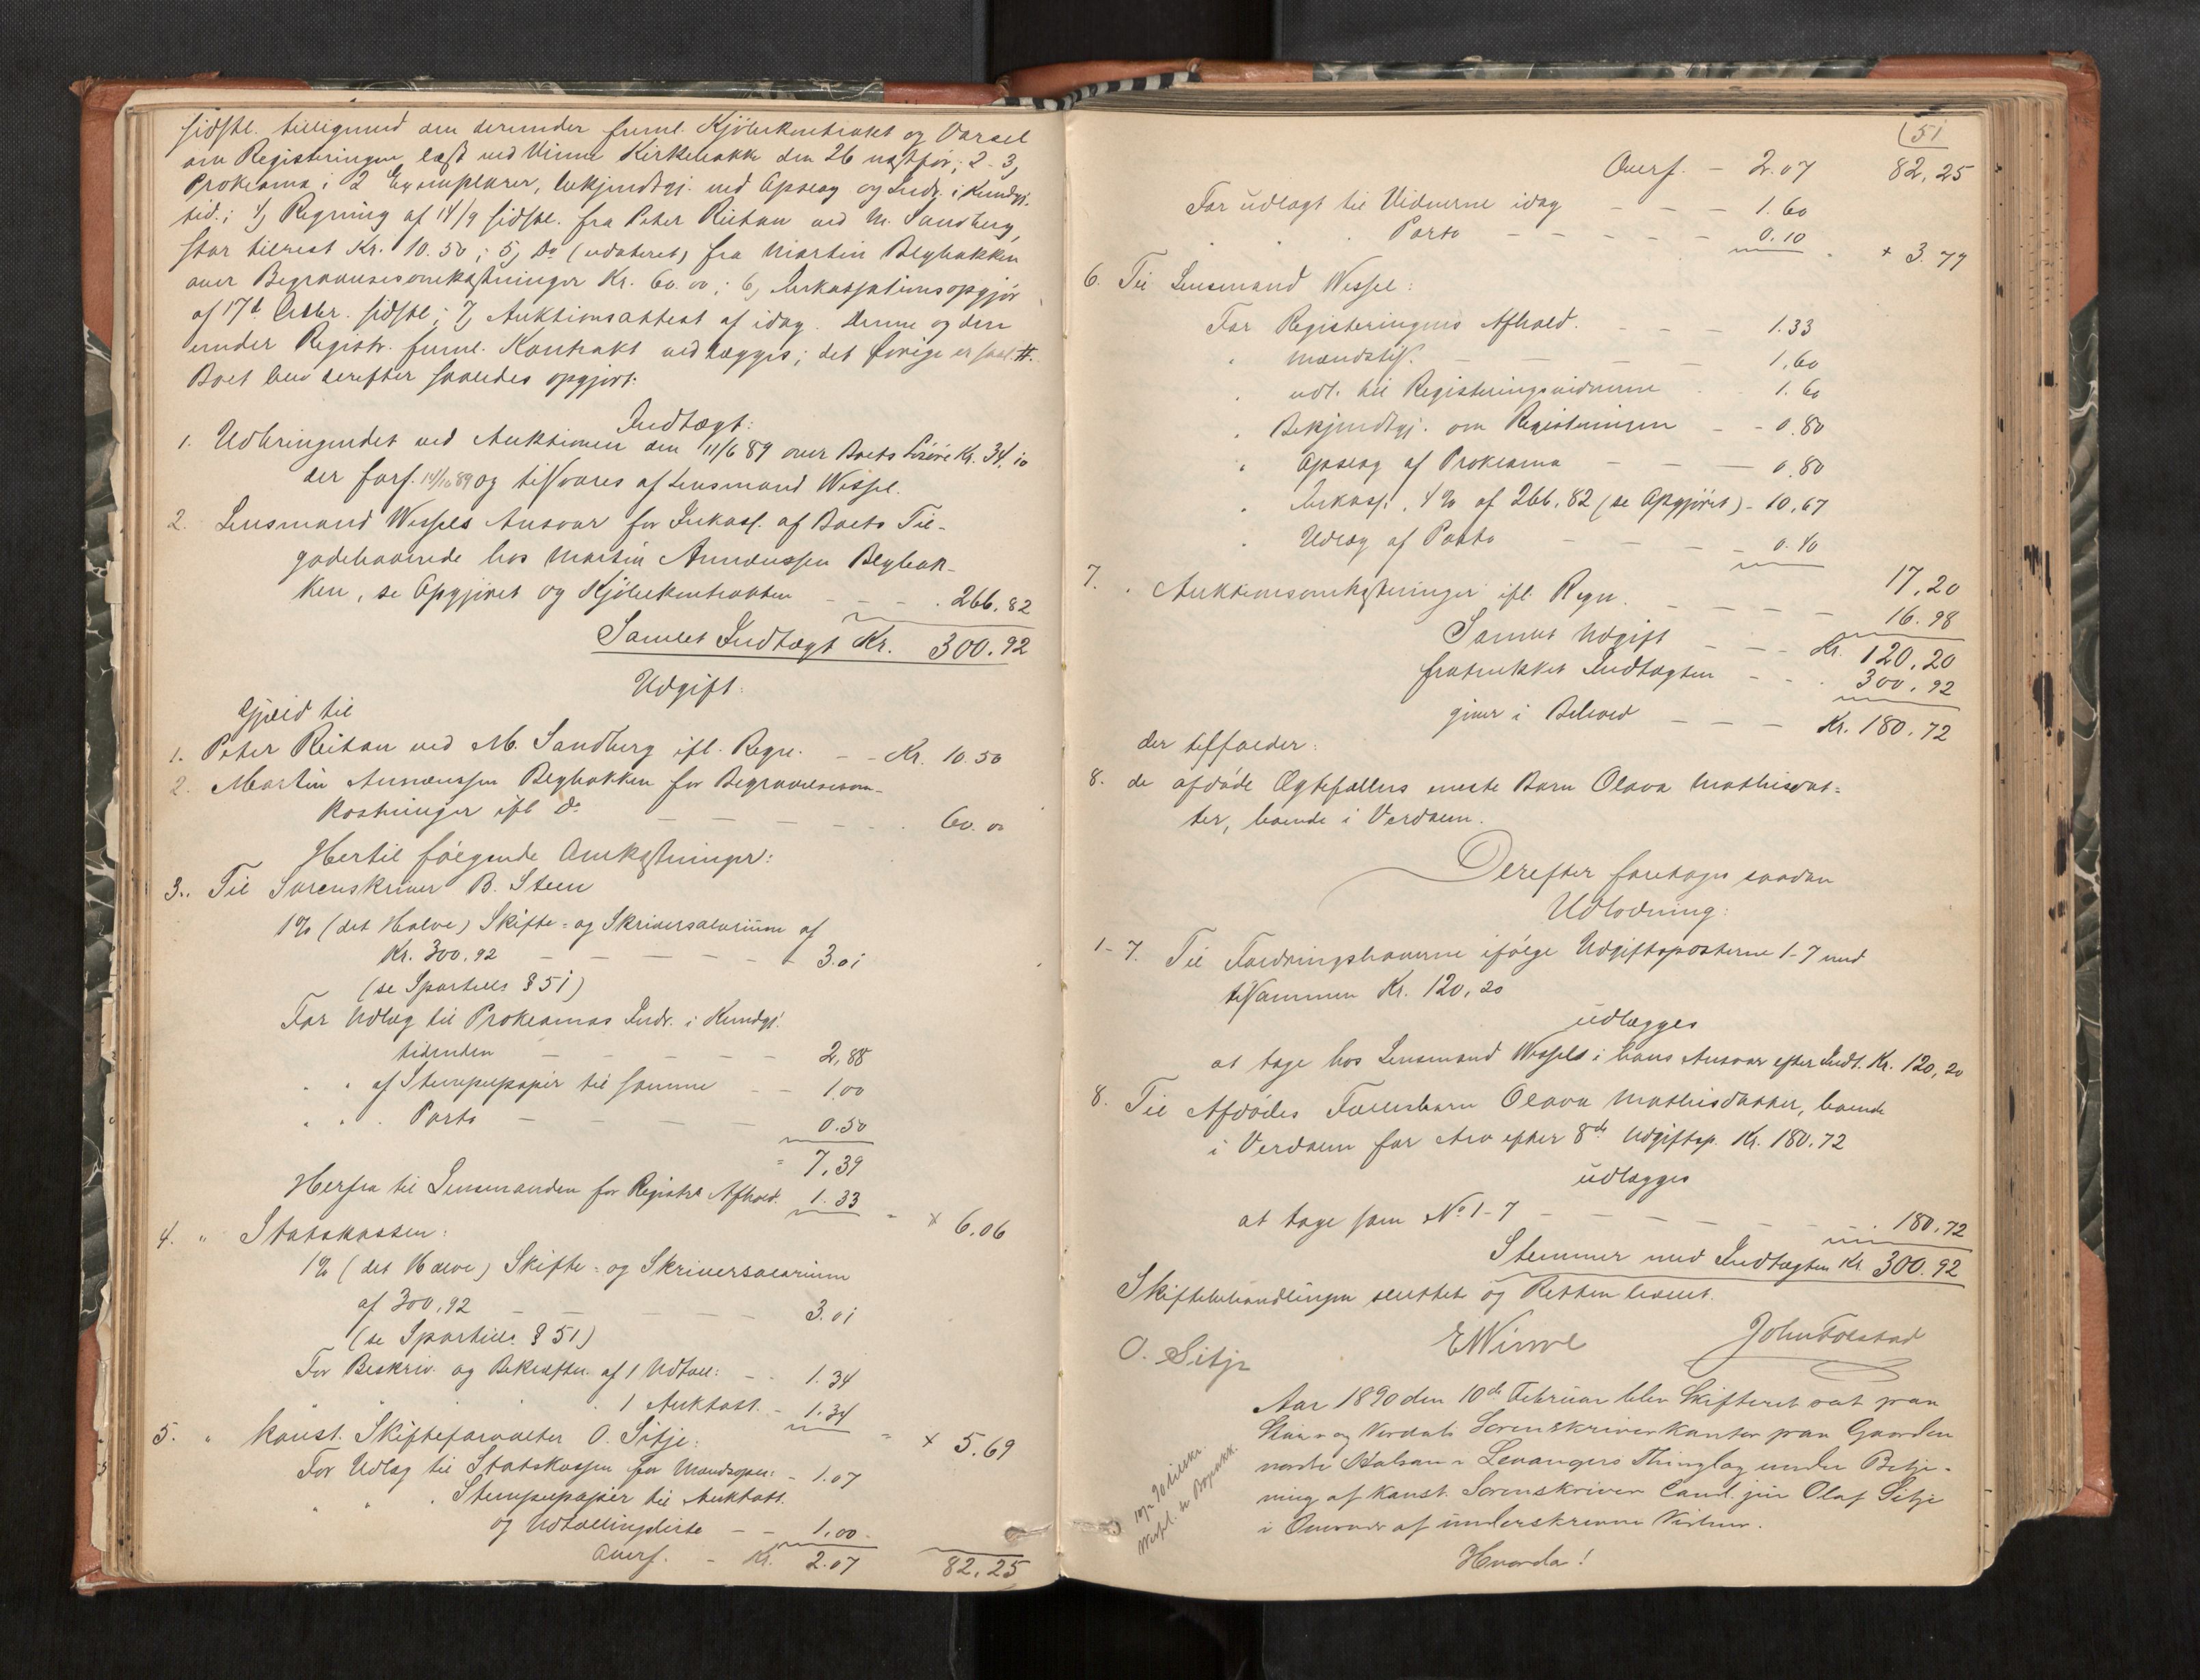 sidstl. tilligemed den derunder freml. Kjöbekontrakt og Varsel
om Registeringen, læst ved Vinne Kirkebakke den 26 næstfør; 2-3,
Proklama i 2 Exemplarer, bekjendtgj. ved Opslag og Indr. i Kundgj.
tid.; 4, Regning af 14/9 sidstl. fra Peter Reitan ved M. Sandberg,
stor tilrest Kr. 10.50; 5, Do (udateret) fra Martin Blybakken
over Begravelsesomkostninger Kr. 60.00; 6, Inkassationsopgjör
af 17de Octbr. sidstl; 7, Auktionsattest af idag. Denne og den
under Registr. freml. Kontrakt vedlægges; det övrige er saal. #.
Boet blev derefter saaledes opgjort:
Indtægt:
1. Udbringendet ved Auktionen den 11/6 89 over Boets Lösöre Kr. 34,10
der forf. 14/10 89 og tilsvares af Lensmand Wessel.
2. Lensmand Wessels Ansvar for Inkass. af Boets Til-
godehavende hos Martin Arnenussen Blybak-
ken, se Opgjöret og Kjöbekontrakten - - - 266.82
Samlet Indtægt Kr. 300.92
Udgift:
Gjæld til
1. Peter Reitan ved M. Sandberg ifl. Regn. - - Kr. 10.50
2. Martin Arnenussen Blybakken for Begravelsesom-
kostninger ifl Do - - - - - 60.00
Hertil fölgende Omkostninger:
3. Til Sorenskriver B. Steen
1% (det Halve) Skifte- og Skriversalarium af
Kr. 300.92 - - - - - 3.01
(se Sportell. § 51)
For Udlæg til Proklamas Indr. i Kundgj.
tidenden - - - - - 2,88
" " af Stempelpapir til samme - - 1.00
" " " Porto - - - - 0.50
7.39
Herfra til Lensmanden for Registrs Afhold. 1.33 - × 6.06
4. " Statskassen:
1% (det Halve) Skifte- og Skriversalarium
af 300,92 - - - - 3.01
(se Sportell. § 51)
For Beskriv. og Bekræften. af 1 Udtall: - - 1.34
" " " 1 Auktatt. - 1.34 - × 5.69
5. " konst. Skifteforvalter O. Sitje:
For Udlæg til Statskassen for Mandsopn: - 1.07
" " " Stempelpapir til Auktatt.
og Udtællingsliste - - 1.00
Overf. - Kr. 2.07 82.25
51
Overf. - 2.07 82,25
For udlagt til Vidnerne idag - - - 1.60
" " " Porto - - - - - 0.10 - × 3.77
6. Til Lensmand Wessel:
For Registeringens Afhold. - - - 1.33
" Mændstils. - - - 1,60
" udl. til Registeringsvidnerne - 1.60
" Bekjendtgj. om Registeringen - - 0.80
" Opslag af Proklama - - - 0.80
" Inkass., 4% af 266.82 (se Opgjöret) - 10,67
" Udlæg af Porto - - - 0.40
17,20
7. " Auktionsomkostninger ifl. Regn. - - - - 16.98
Samlet Udgift - - - Kr. 120,20
fratrukket Indtægten - - 300.92
giver i Behold - - - Kr. 180.72
der tilfalder:
8. de afdöde Ægtefællers eneste Barn Olava Mathisdat-
ter, boende i Verdalen.
Derefter foretoges saadan
Udlodning:
1-7. Til Fordringshaverne ifölge Udgiftsposterne 1-7 med
tilsammen Kr. 120,20
udlægges
at tage hos Lensmand Wessels i hans Ansvar efter Indt. Kr. 120,20
8. Til Afdödes Fællesbarn Olava Mathisdatter, boende
i Verdalen for Arv efter 8de Udgiftsp. Kr. 180.72
udlægges
at tage som No 1-7 - - - - - - - 180,72
Stemmer med Indtægten Kr. 300.92
Skiftebehandlingen sluttet og Retten hævet.
O. Sitje E Winne John Tolstad
Aar 1890 den 10de Februar blev Skifteret sat paa
Stjør- og Verdals Sorenskriverkontor paa Gaarden
nordre Halsan i Levangers Thinglag under Betje-
ning af konst. Sorenskriver Cand. jur Olaf Sitje
i Overvær af underskrevne Vidner.
Hvorda!